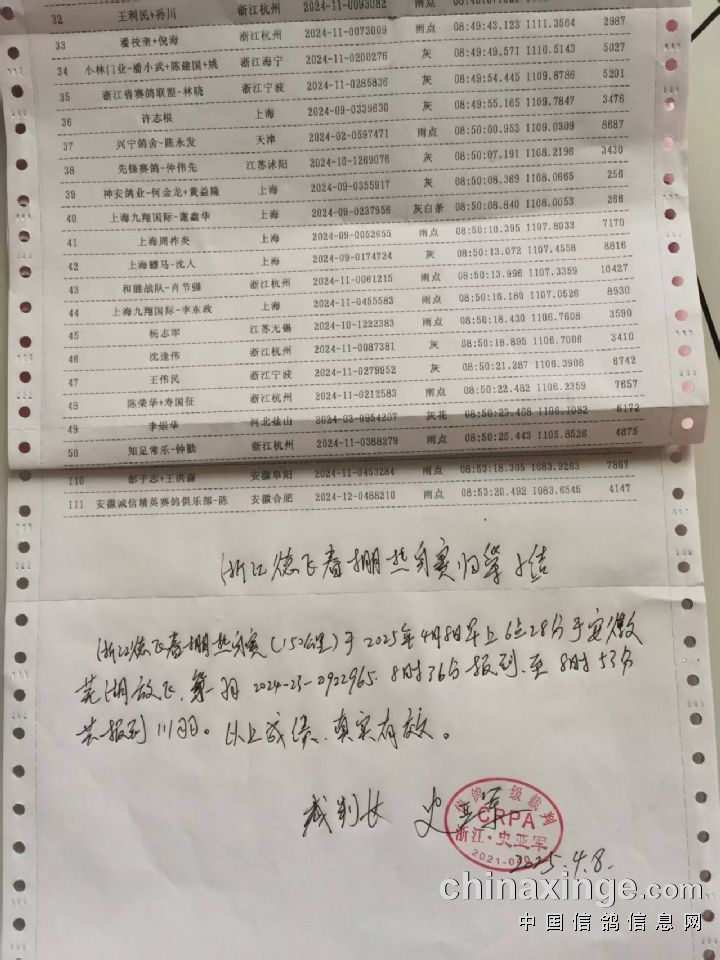 32 王利民+孙川 浙江杭州 2024-11-0093082 雨点
33 潘校奎+倪海 浙江杭州 2024-11-0073009 雨点 08:49:43.123 1111.3564 2987
34 小林门业-潘小武+陈建国+姚 浙江海宁 2024-11-0200276 灰 08:49:49.571 1110.5143 5027
35 浙江省赛鸽联盟-林晓 浙江宁波 2024-11-0285836 灰 08:49:54.445 1109.8786 5201
36 许志根 上海 2024-09-0339630 灰 08:49:55.165 1109.7847 3476
37 兴宁鸽舍-陈永发 天津 2024-02-0597471 雨点 08:50:00.953 1109.0309 8687
38 先锋赛鸽-仲伟先 江苏沭阳 2024-10-1269076 灰 08:50:07.191 1108.2196 3430
39 神安鸽业-何金龙+黄益隆 上海 2024-09-0355917 灰 08:50:08.369 1108.0665 256
40 上海九翔国际-谢鑫华 上海 2024-09-0237956 灰白条 08:50:08.840 1108.0053 266
41 上海周祚炎 上海 2024-09-0052655 雨点 08:50:10.395 1107.8033 7170
42 上海骠马-沈人 上海 2024-09-0174724 灰 08:50:13.072 1107.4558 8816
43 和睦战队-肖节强 浙江杭州 2024-11-0061215 雨点 08:50:13.996 1107.3359 10427
44 上海九翔国际-李东政 上海 2024-11-0455583 雨点 08:50:16.180 1107.0526 8930
45 杨志军 江苏无锡 2024-10-1222383 雨点 08:50:18.430 1106.7608 3590
46 沈逢伟 浙江杭州 2024-11-0087381 灰 08:50:18.895 1106.7006 3410
47 王伟民 浙江宁波 2024-11-0279952 灰 08:50:21.287 1106.3906 6742
48 陈荣华+寿国征 浙江杭州 2024-11-0212583 雨点 08:50:22.482 1106.2359 7657
49 李崇华 河北盐山 2024-03-0954207 灰花 08:50:23.468 1106.1082 6172
50 知足常乐-钟勤 浙江杭州 2024-11-0388279 雨点 08:50:25.443 1105.8526 4875
110 彭子志+王洪淼 安徽阜阳 2024-11-0453284 雨点 08:53:18.305 1083.9263 7867
111 安徽诚信精英赛鸽俱乐部-陈 安徽合肥 2024-12-0488210 雨点 08:53:20.492 1083.6545 4147
浙江德飞春棚热身赛归巢小结
浙江德飞春棚热身赛(150公里)于2025年4月8日早上6点28分于安徽
芜湖放飞,第一羽2024-23-0922965.8时36分报到.至8时53分
共报到111羽。以上成绩,真实有效。
裁判长 史亚军
信鸽一级裁判
CRPA
浙江·史亚军
2025.4.8.
chinaxinge.com
中国信鸽信息网